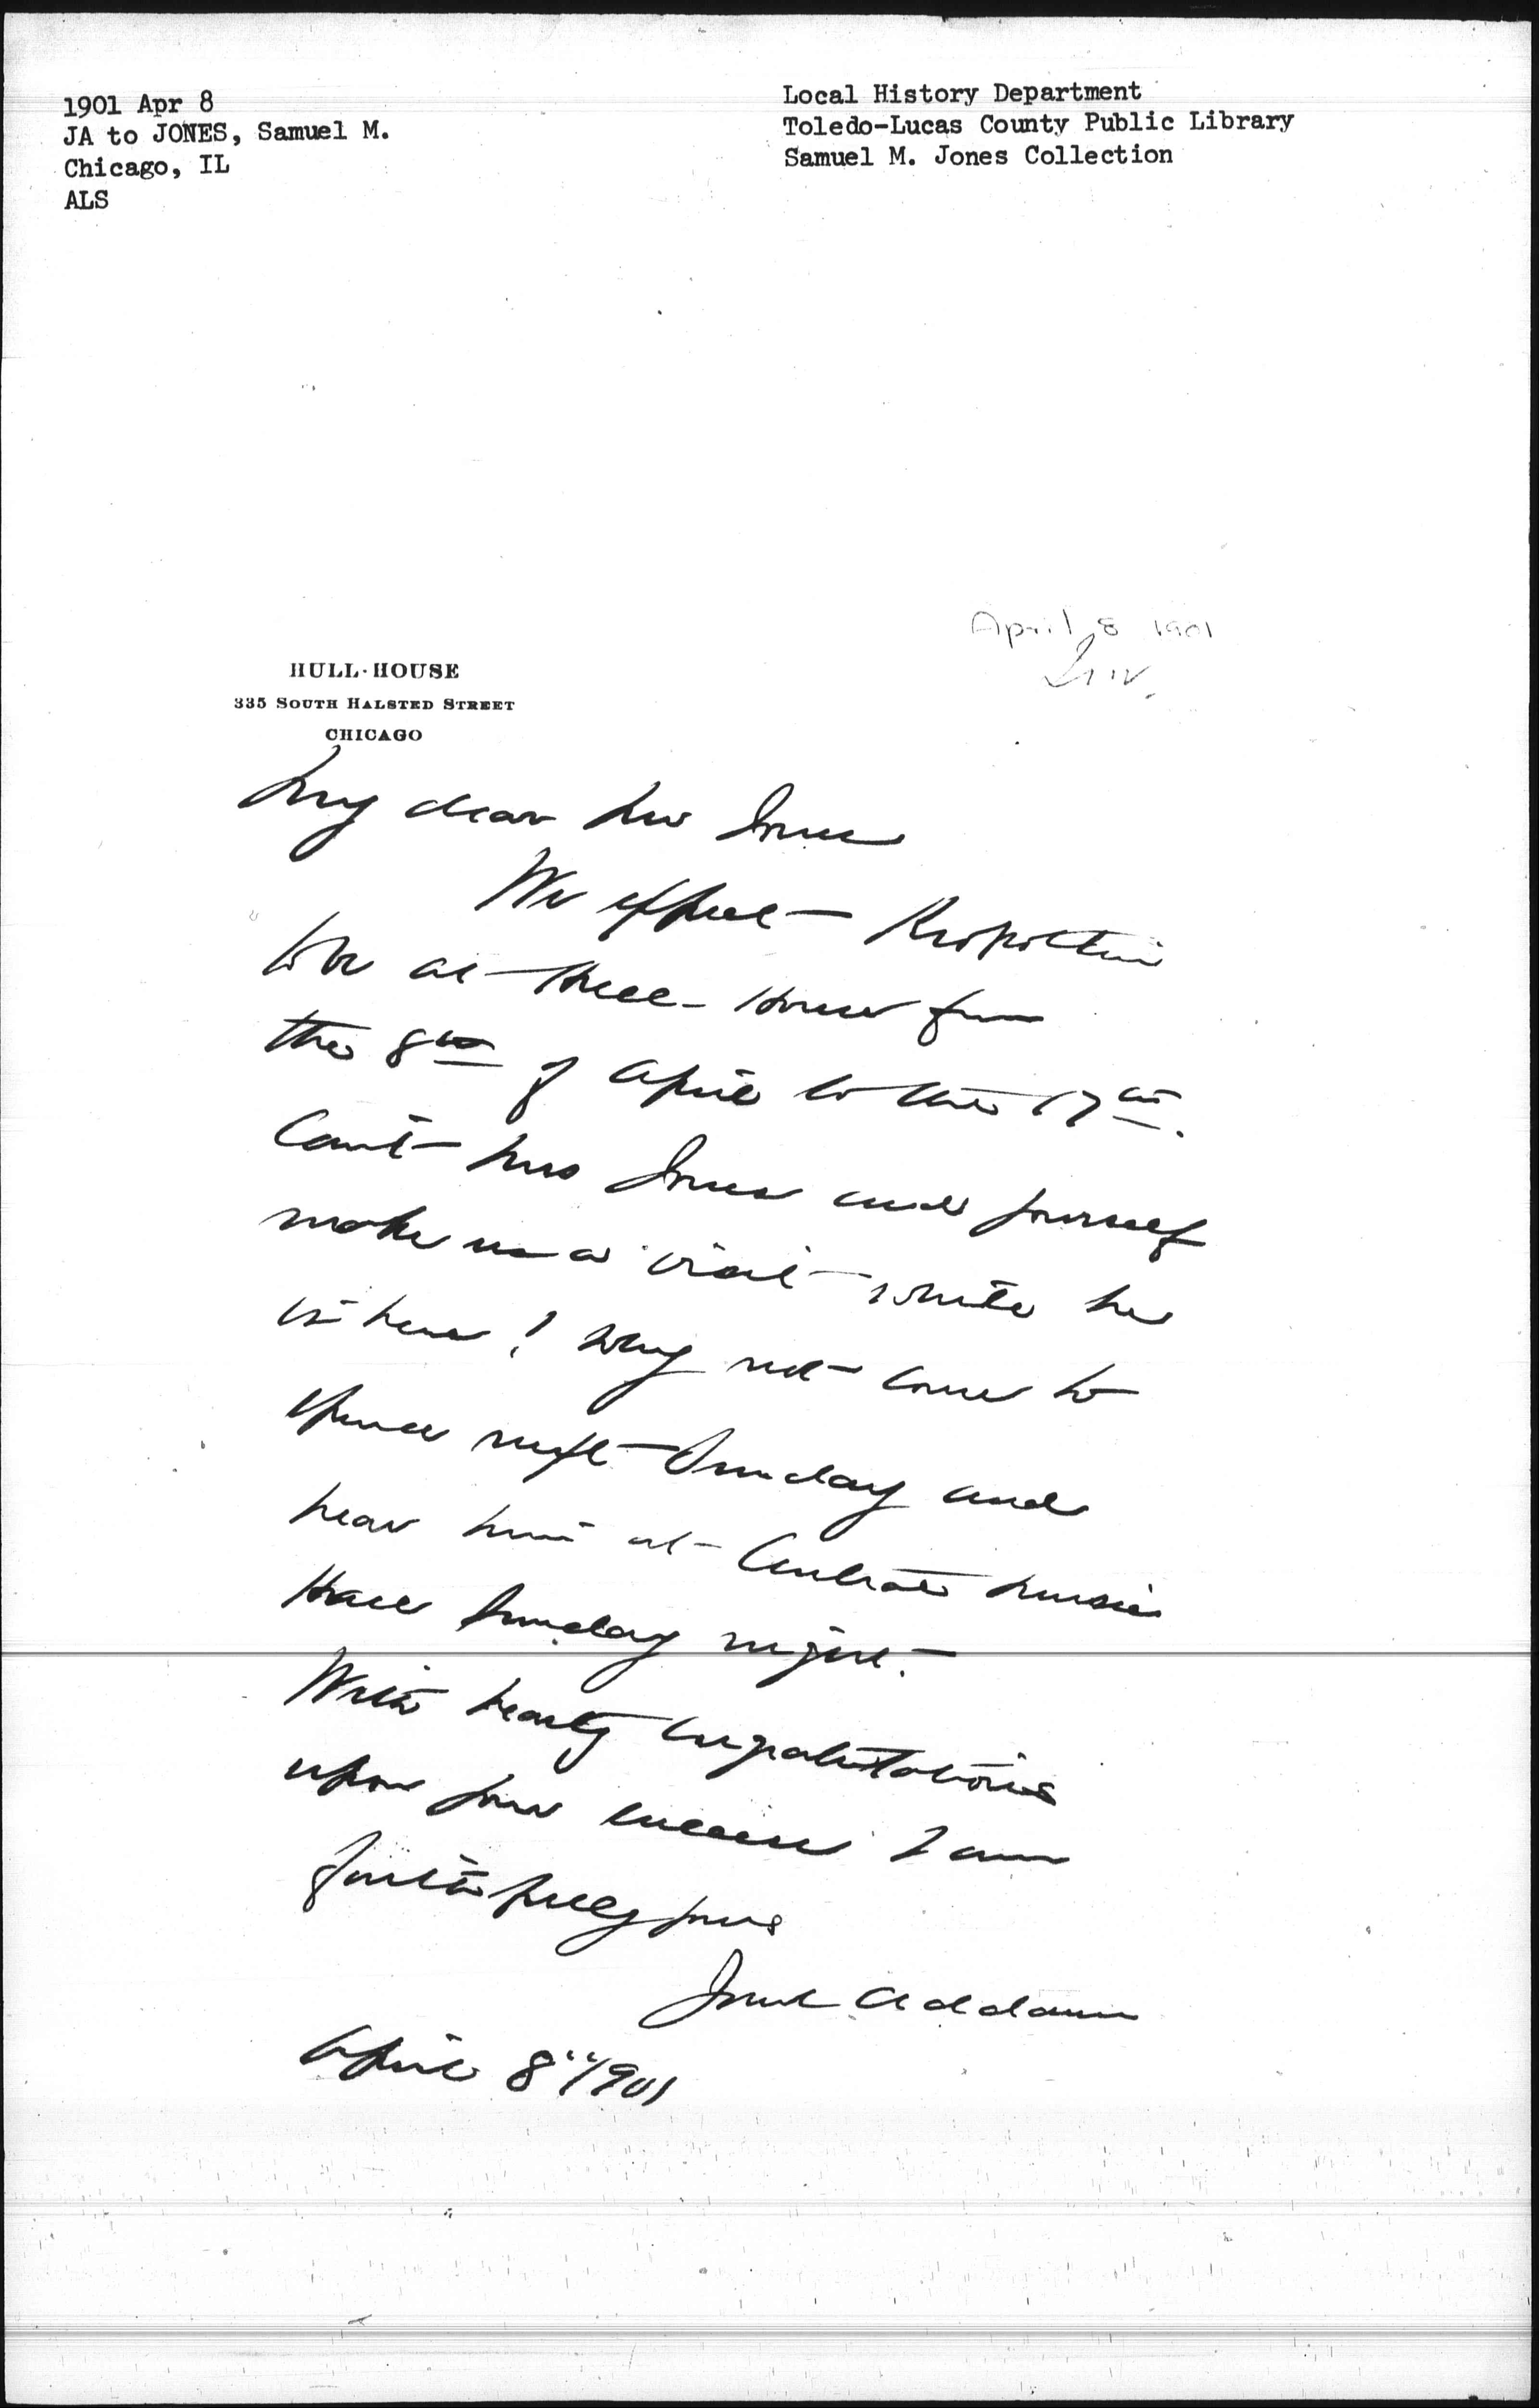 1901 Apr 8
JA to JONES, Samuel M.
Chicago, IL
ALS
Local History Department
Toledo-Lucas County Public Library
Samuel M. Jones Collection
April 8 1901
HULL-HOUSE
335 SOUTH HALSTED STREET
CHICAGO
My dear Mr Jones
We expect Kropotkin
to be at Hull-House from
the 8th of April to the 17th.
Can't Mrs Jones and yourself
make us a visit while he
is here! Why not come to
spend next Sunday and
hear him at Central Music
Hall Sunday night.
With hearty congratulations
upon your success I am
faithfully yours
Jane Addams
April 8" 1901